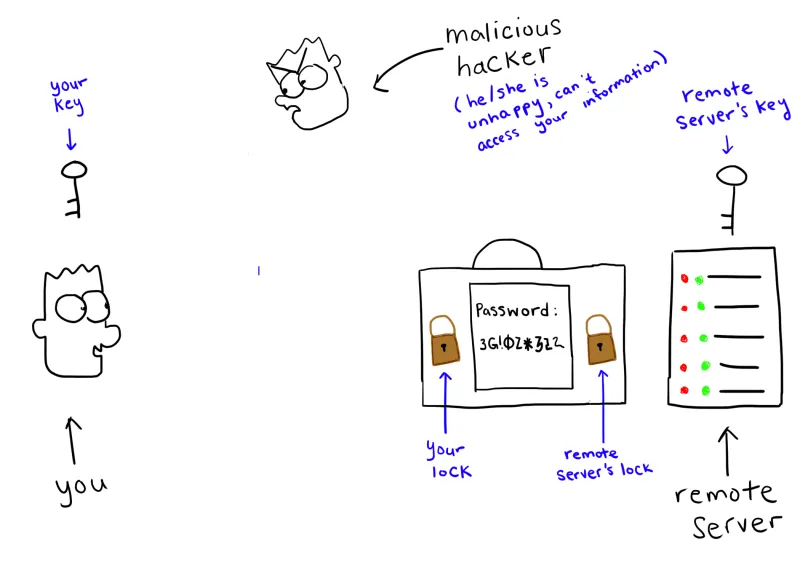 malicious
hacker
(he/she is
unhappy, can't
access your information)
your
key
remote
server's key
Password:
3G!0Z*322
your
lock
remote
server's lock
you
remote
server